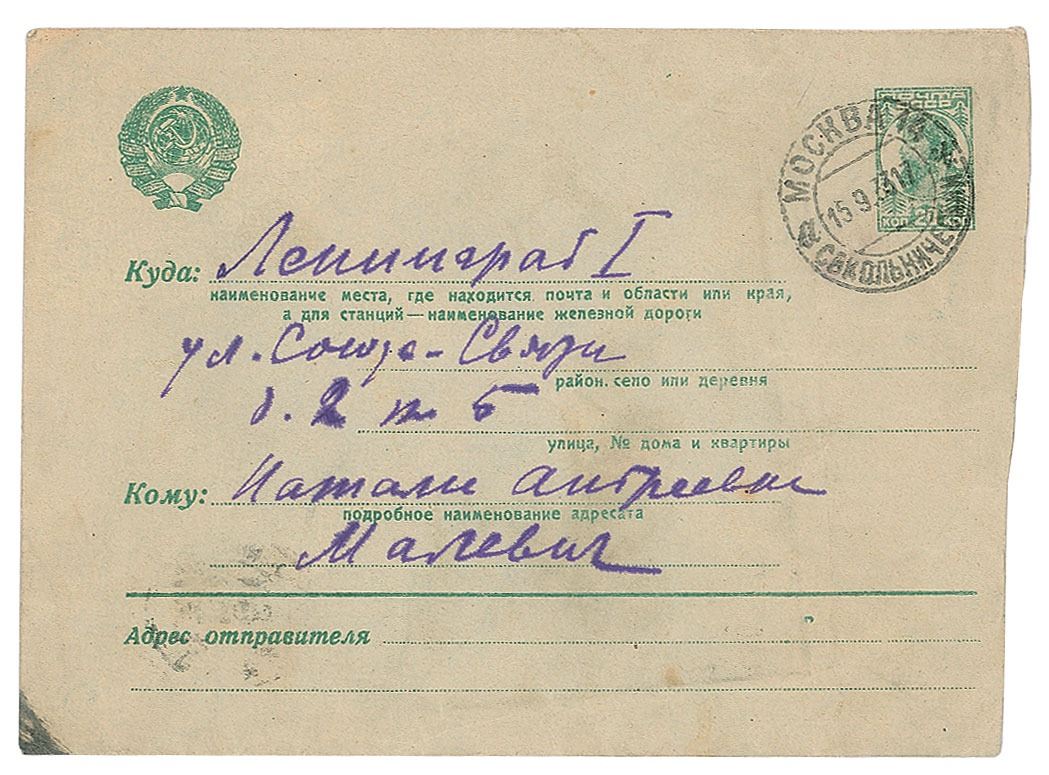 ПОЧТА
СССР
КОП. 20 КОП.
МОСКВА 14
15.9
СОКОЛЬНИЧЕС
Куда: Ленинград I
наименование места, где находится почта и области или края,
а для станций—наименование железной дороги
ул. Союза-Связи
район, село или деревня
д. 2 кв 5
улица, № дома и квартиры
Кому: Натали Андреевне
подробное наименование адресата
Малевич
Адрес отправителя